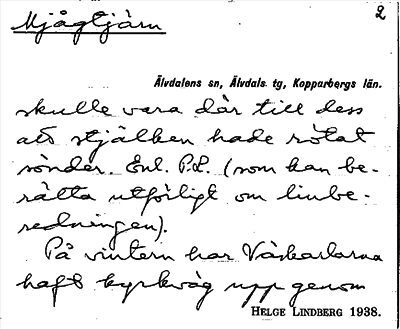 Mjågtjärn
2
Älvdalens sn, Älvdals. tg, Kopparbergs län.
skulle vara där till dess
att stjälken hade rötat
sönder. Enl. P.L. (som kan be-
rätta utförligt om linbe-
redningen).
På vintern har Våskarlarna
haft kyrkväg upp genom
HELGE LINDBERG 1938.